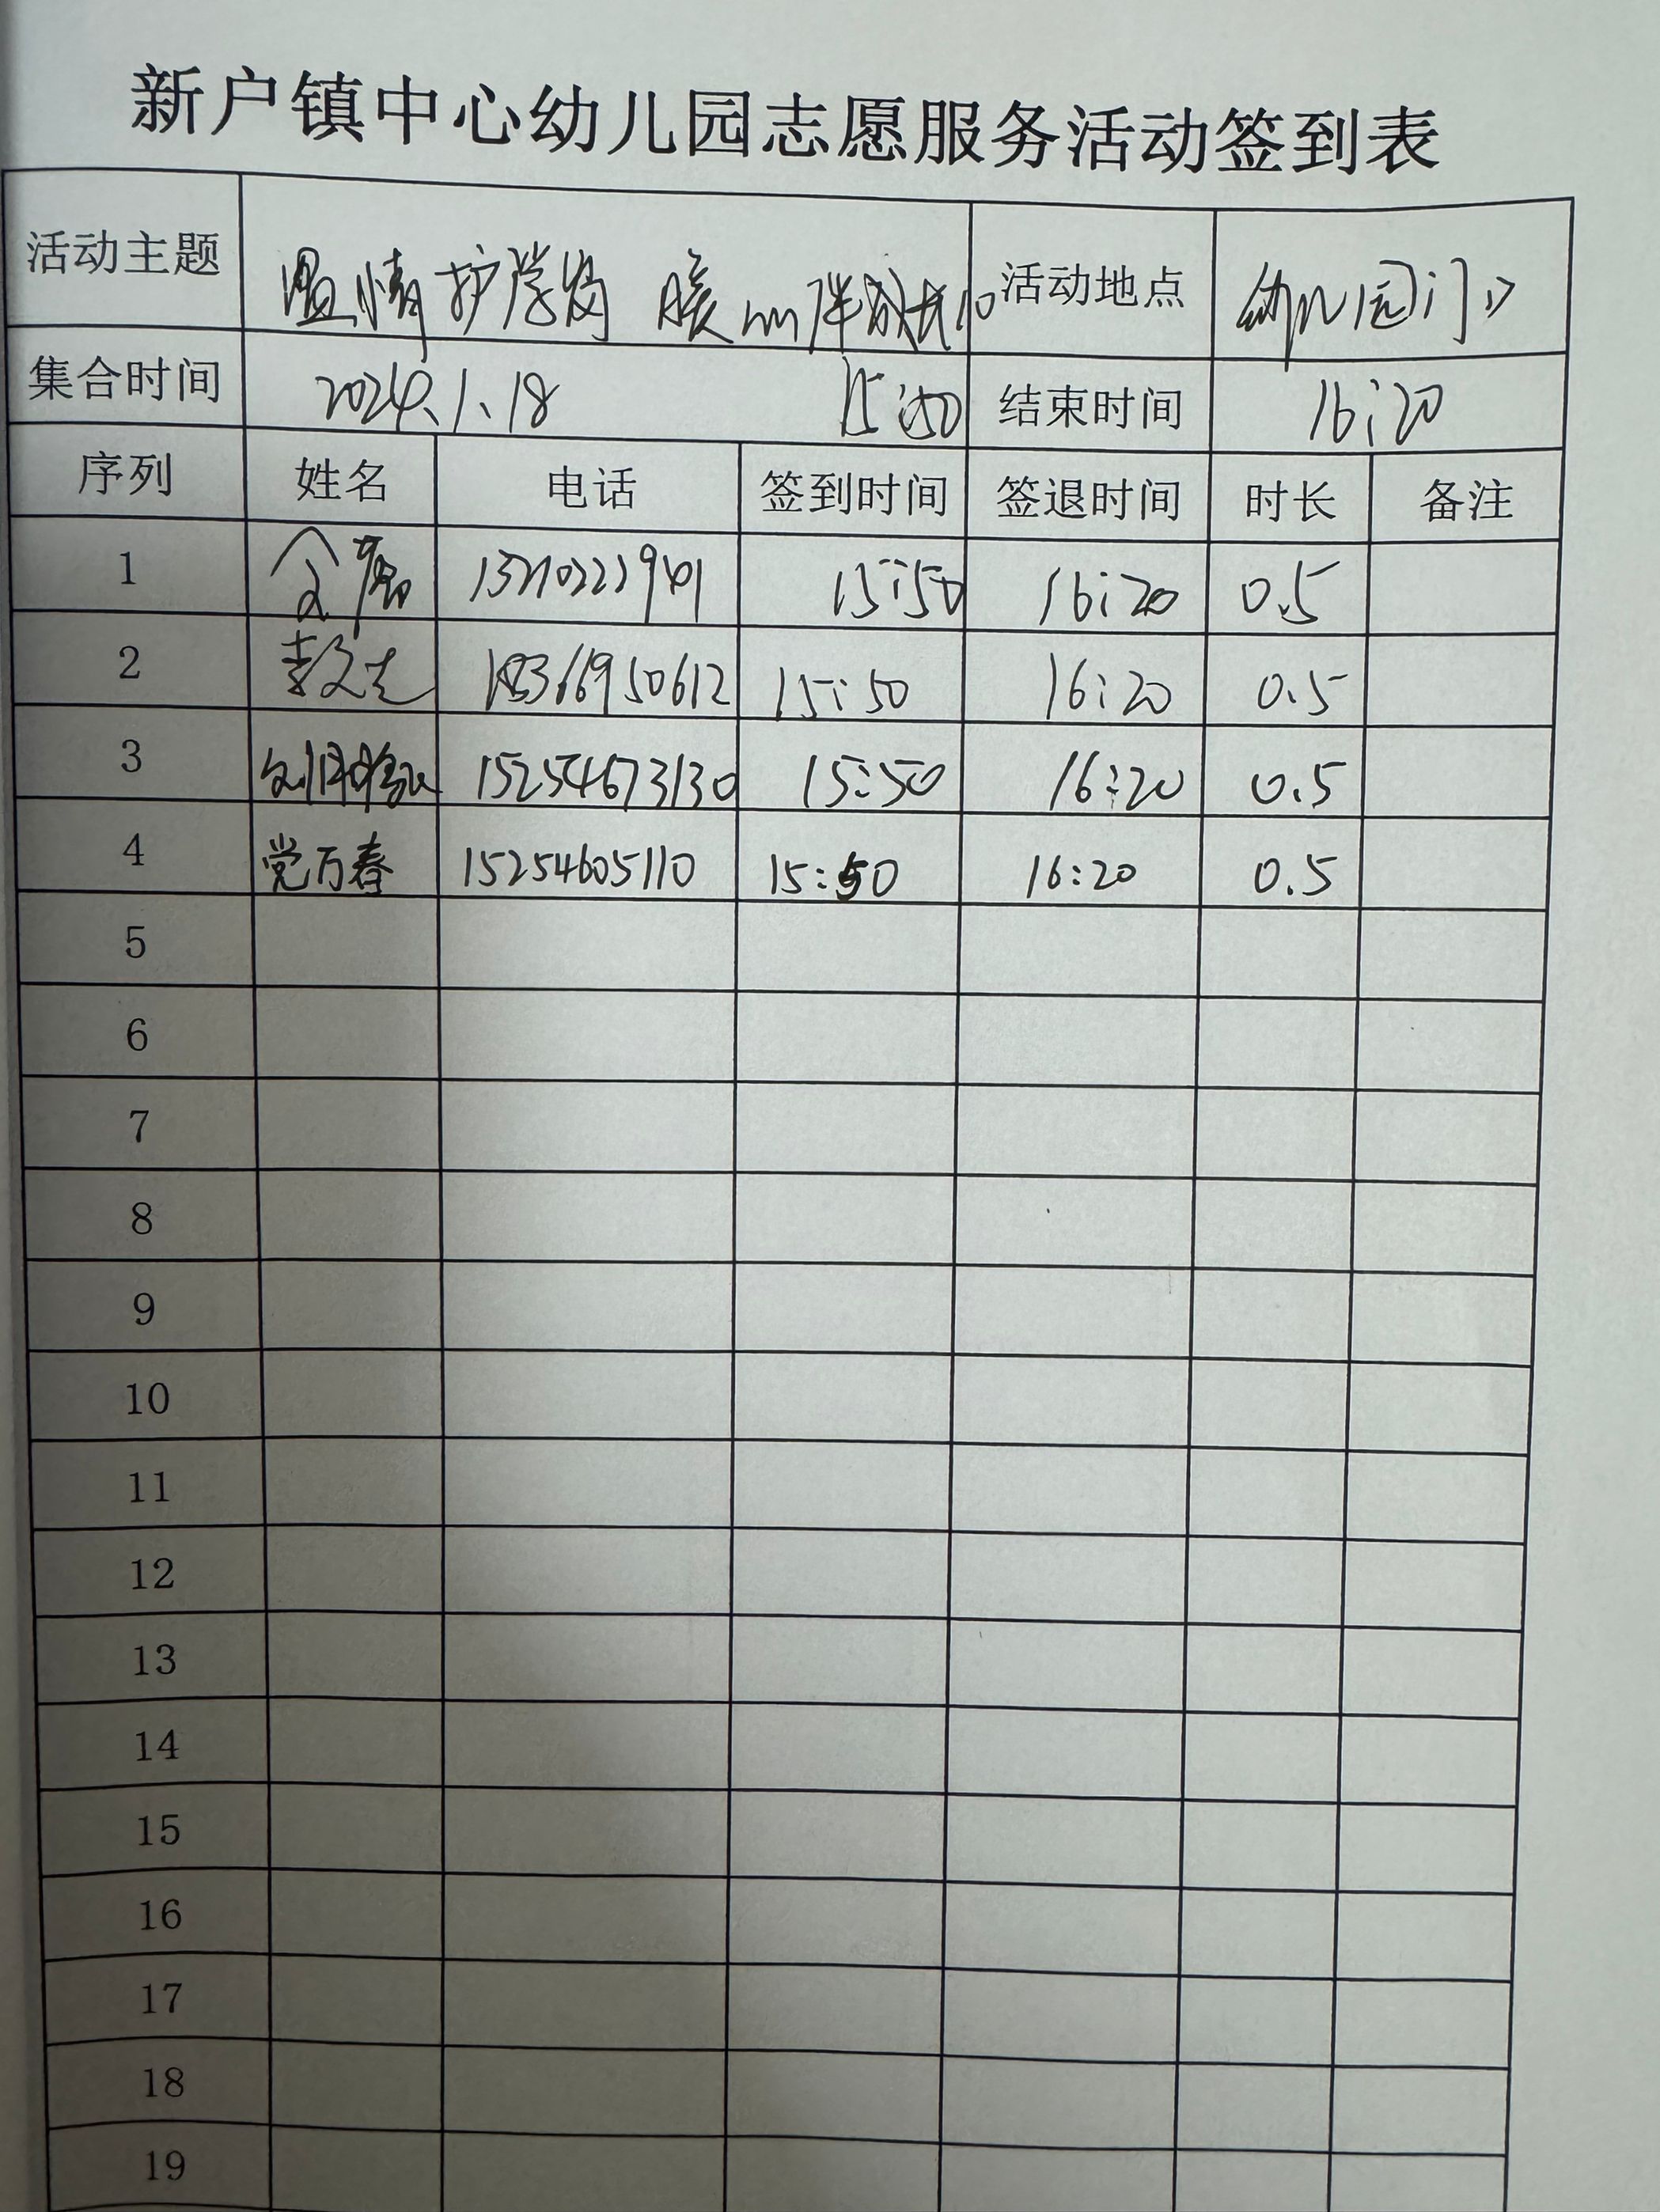 新户镇中心幼儿园志愿服务活动签到表
活动主题 温情护学岗 暖心伴成长 活动地点 幼儿园门口
集合时间 2024.1.18 15:50 结束时间 16:20
序列 姓名 电话 签到时间 签退时间 时长 备注
1 15:50 16:20 0.5
2 18366950612 15:50 16:20 0.5
3 15254673130 15:50 16:20 0.5
4 党万春 15254605110 15:50 16:20 0.5
5
6
7
8
9
10
11
12
13
14
15
16
17
18
19